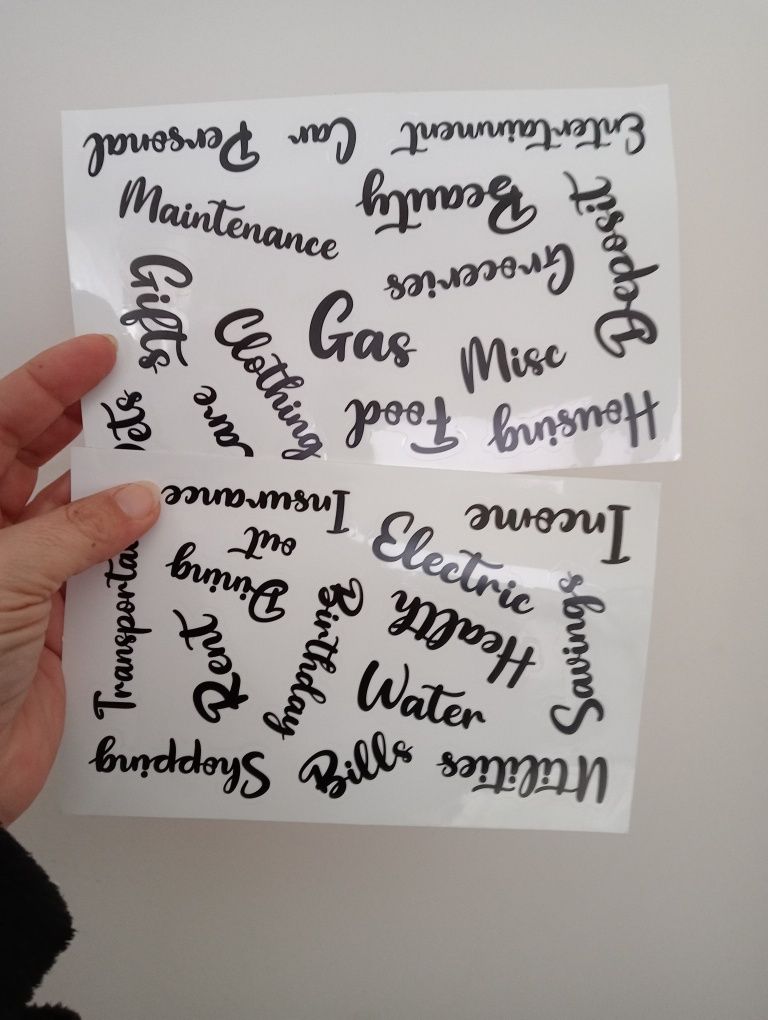 Personal
Car
Entertainment
Maintenance
Beauty
Deposit
Groceries
Gifts
Gas
Clothing
Misc
Food
Housing
Insurance
Income
Electric
Dining
out
Health
Savings
Birthday
Rent
Water
Shopping
Bills
Utilities